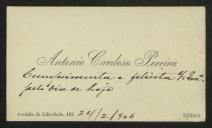 Antonio Cardoso Pereira
Cumprimenta e felicita V. Exª
pelo dia de hoje
Avenida da Liberdade, 193 24/2/906 LISBOA